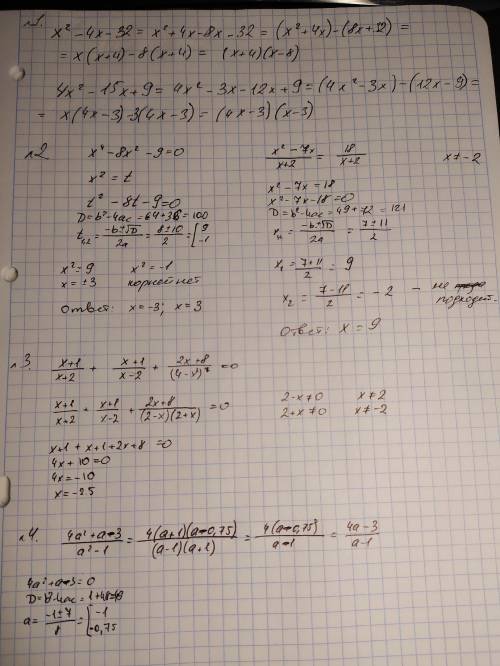 №1.
x² - 4x - 32 = x² + 4x - 8x - 32 = (x² + 4x) - (8x + 32) =
= x(x+4) - 8(x+4) = (x+4)(x-8)
4x² - 15x + 9 = 4x² - 3x - 12x + 9 = (4x² - 3x) - (12x - 9) =
= x(4x-3) - 3(4x-3) = (4x-3)(x-3)
№2
x⁴ - 8x² - 9 = 0
x² = t
t² - 8t - 9 = 0
D = b² - 4ac = 64 + 36 = 100
t₁,₂ = (-b±√D)/2a = (8±10)/2 = [9 -1
x² = 9 x² = -1
x = ±3 корней нет
Ответ: x = -3; x = 3
(x² - 7x)/(x+2) = 18/(x+2) x ≠ -2
x² - 7x = 18
x² - 7x - 18 = 0
D = b² - 4ac = 49 + 72 = 121
= (-b±√D)/2a = (7±11)/2
x₁ = (7+11)/2 = 9
x₂ = (7-11)/2 = -2 - не подходит.
Ответ: x = 9
№3.
(x+1)/(x+2) + (x+1)/(x-2) + (2x+8)/(4-x²) = 0
(x+1)/(x+2) + (x+1)/(x-2) + (2x+8)/((2-x)(2+x)) = 0
2-x ≠ 0 x ≠ 2
2+x ≠ 0 x ≠ -2
x+1 + x+1 + 2x+8 = 0
4x + 10 = 0
4x = -10
x = -2.5
№4.
(4a² + a - 3)/(a² - 1) = 4(a+1)(a-0,75)/((a-1)(a+1)) = 4(a-0,75)/(a-1) = (4a-3)/(a-1)
4a² + a - 3 = 0
D = b² - 4ac = 1 + 48 = 49
a = (-1±7)/8 = [-1 0,75